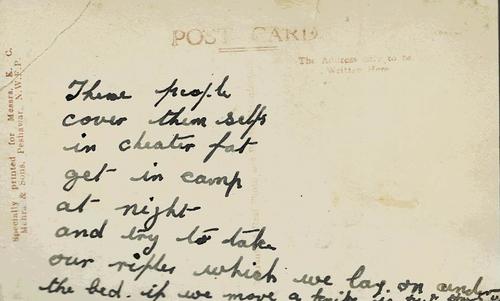 POST CARD
The Address only to be
Written Here
Specially printed for Messrs. K. C.
Mehra & Sons, Peshawar, N.W.F.P.
These people
cover them selfs
in cheater fat
get in camp
at night
and try to take
our rifles which we lay on under
the bed. if we move a knife is